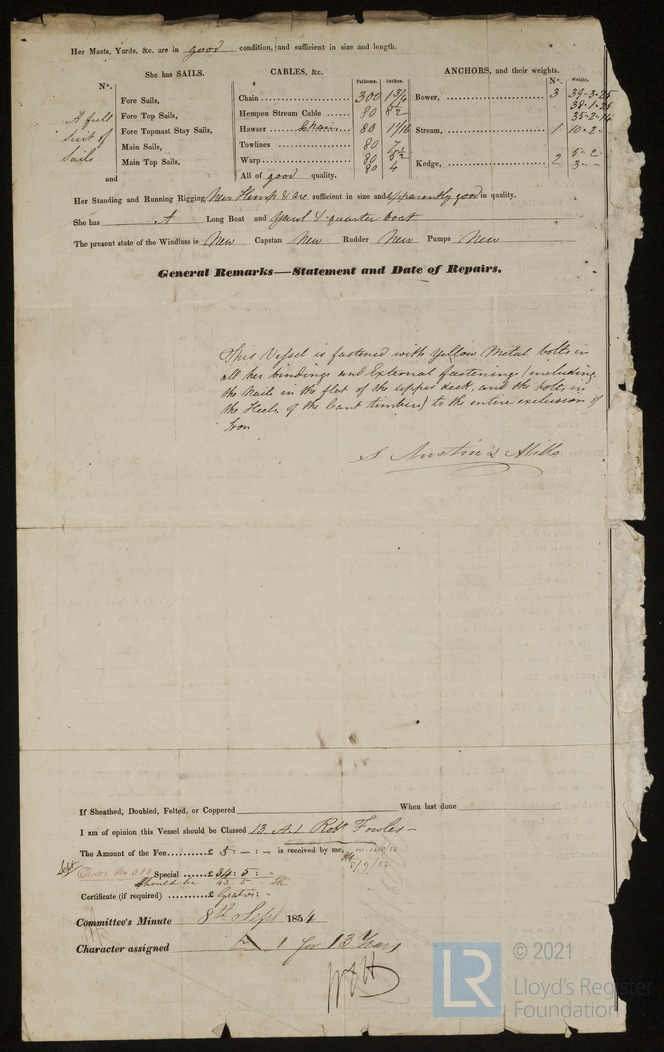 Her Masts, Yards, &c. are in good condition, and sufficient in size and length.
She has SAILS. CABLES, &c. Fathoms. Inches. ANCHORS, and their weights. Nº. Weight.
Nº.
Fore Sails, Chain 300 1 3/4 Bower, 3 39-3-25
A full Fore Top Sails, Hempen Stream Cable 80 8 1/2 38-1-25
suit of Fore Topmast Stay Sails, Hawser Chain 80 Stream, 1 10-2-
35-2-14
Sails Main Sails, Towlines 80 7
Main Top Sails, Warp 80 5 1/2 Kedge, 2 5-2-
80 4 3- -
and All of good quality.
Her Standing and Running Rigging New Hemp & are sufficient in size and apparently good in quality.
She has A Long Boat and Yawl & quarter boat
The present state of the Windlass is New Capstan New Rudder New Pumps New
General Remarks—Statement and Date of Repairs.
This Vessel is fastened with Yellow Metal bolts in
all her bindings and External fastenings (including
the Nails in the flat of the upper deck, and the bolts in
the Heels of the Cant timbers) to the entire exclusion of
Iron
S Austin & Mills
If Sheathed, Doubled, Felted, or Coppered When last done
I am of opinion this Vessel should be Classed 13 A1 Robt Fowles
The Amount of the Fee £ 5 : - : - is received by me,
Special £ 34 : 5 : -
Should be 43 5
Certificate (if required) £ Gratis : -
Committee's Minute 8th Sept 1854
Character assigned A 1 for 13 Years
LR © 2021
Lloyd's Register
Foundation